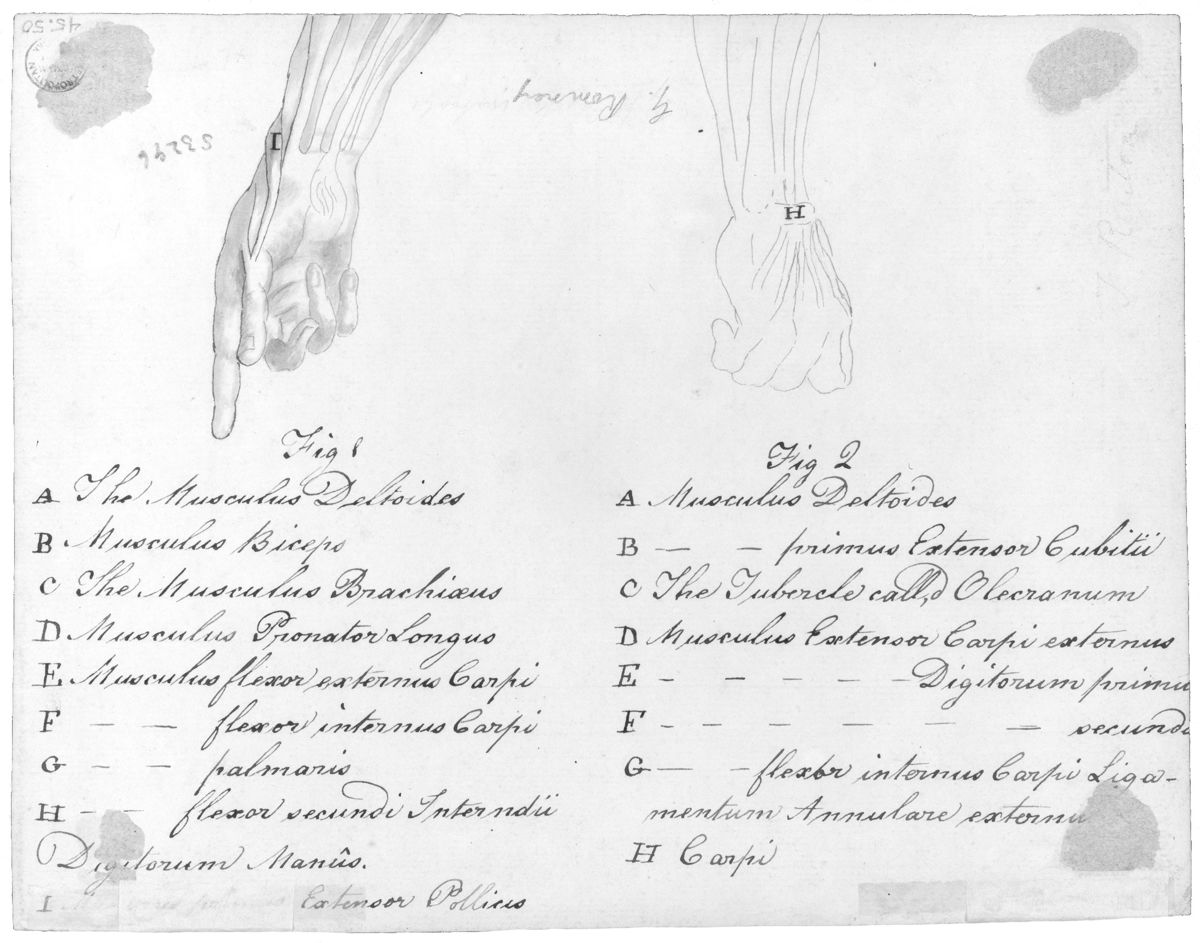 45.50
53296
G. Romney
I
H
Fig 1
A The Musculus Deltoides
B Musculus Biceps
C The Musculus Brachiæus
D Musculus Pronator Longus
E Musculus flexor externus Carpi
F — — flexor internus Carpi
G — — palmaris
H — — flexor secundi Interndii
Digitorum Manûs.
I Extensor Pollicus
Fig 2
A Musculus Deltoides
B — — primus Extensor Cubitii
C The Tubercle call,d Olecranum
D Musculus Extensor Carpi externus
E - - - - - Digitorum primu
F - - - - - - secundi
G — — flexor internus Carpi Liga-
mentum Annulare externu
H Carpi